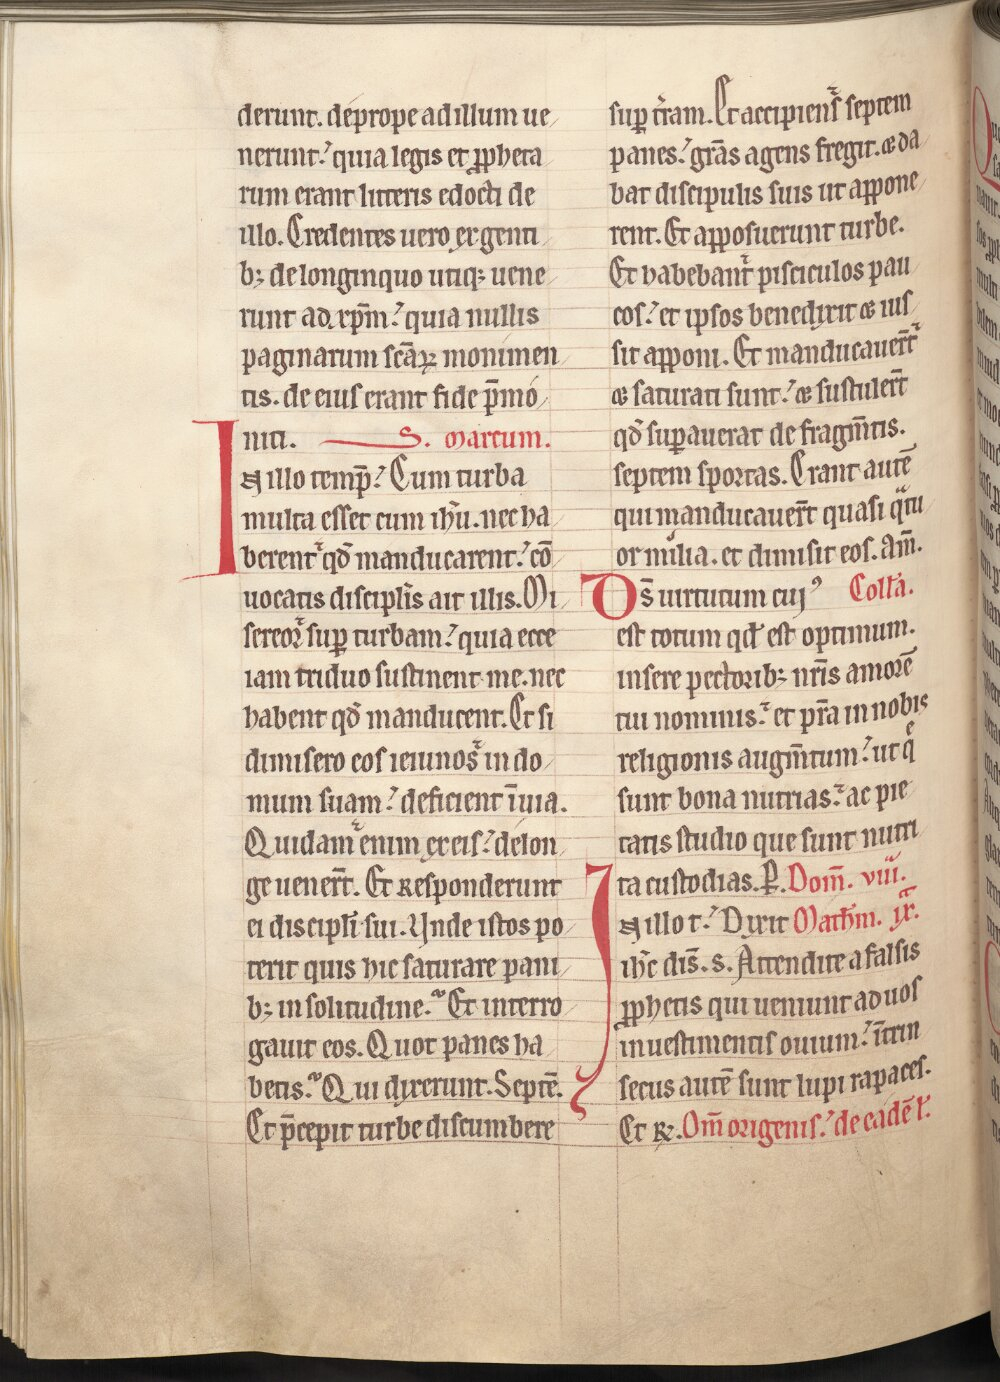 derunt. de prope ad illum ue
nerunt. quia legis et ꝓpheta
rum erant litteris edocti de
illo. Credentes uero ex genti
b; de longinquo utiq; uene
runt ad xp̄m. quia nullis
paginarum scāꝝ monimen
tis. de eius erant fide p̄mo
niti. S. marcum.
In illo temp̄. Cum turba
multa esset cum ih̄u. nec ha
berent qd̄ manducarent. cō
uocatis discipl̄is ait illis. Mi
sereor suꝑ turbam. quia ecce
iam triduo sustinent me. nec
habent qd̄ manducent. Et si
dimisero eos ieiunos in do
mum suam. deficient ī uia.
Quidam enim ex eis. de lon
ge uener̄t. Et responderunt
ei discipl̄i sui. Unde istos po
terit quis hic saturare pani
b; in solitudine. Et interro
gauit eos. Quot panes ha
betis. Qui dixerunt. Septē.
Et p̄cepit turbe discumbere
suꝑ t̄ram. Et accipiens septem
panes. gr̄as agens fregit. & da
bat discipulis suis ut appone
rent. Et apposuerunt turbe.
Et habebant pisciculos pau
cos. et ipsos benedixit & ius
sit apponi. Et manducauer̄t
& saturati sunt. & sustuler̄t
qd̄ suꝑauerat de fragm̄tis.
septem sportas. Erant autē
qui manducauer̄t quasi q̄tu
or milia. et dimisit eos. Am̄.
Ds̄ uirtutum cuiꝰ Coll̄a.
est totum qd̄ est optimum.
insere pectorib; nr̄is amorē
tui nominis. et p̄ra in nobis
religionis augm̄tum. ut q̄
sunt bona nutrias. ac pie
tatis studio que sunt nutri
ta custodias. P. Dom̄. viii.
In illo t. Dixit Math̄m. ix.
ih̄c dis̄. s. Attendite a falsis
ꝓphetis qui ueniunt ad uos
in uestimentis ouium. īt̄rin
secus autē sunt lupi rapaces.
Et ꝶ. Om̄ origenis. de eadē l̄.